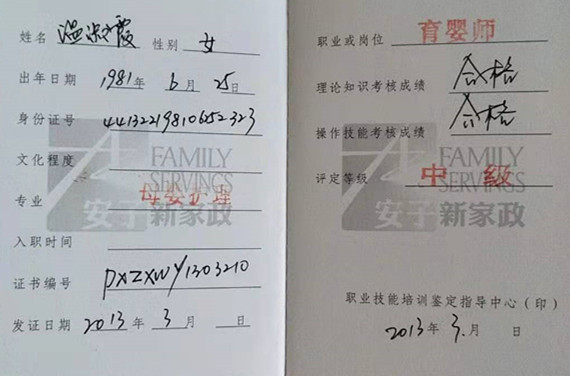 姓名 温淑霞 性别 女
出年日期 1981年 6月 25日
身份证号 441322198106252323
文化程度
专业 母婴护理
入职时间
证书编号 PXZXWY1303210
发证日期 2013年 3月 日
FAMILY
SERVINGS
安子新家政
职业或岗位 育婴师
理论知识考核成绩 合格
操作技能考核成绩 合格
评定等级 中级
FAMILY
SERVINGS
安子新家政
职业技能培训鉴定指导中心（印）
2013年 3月 日